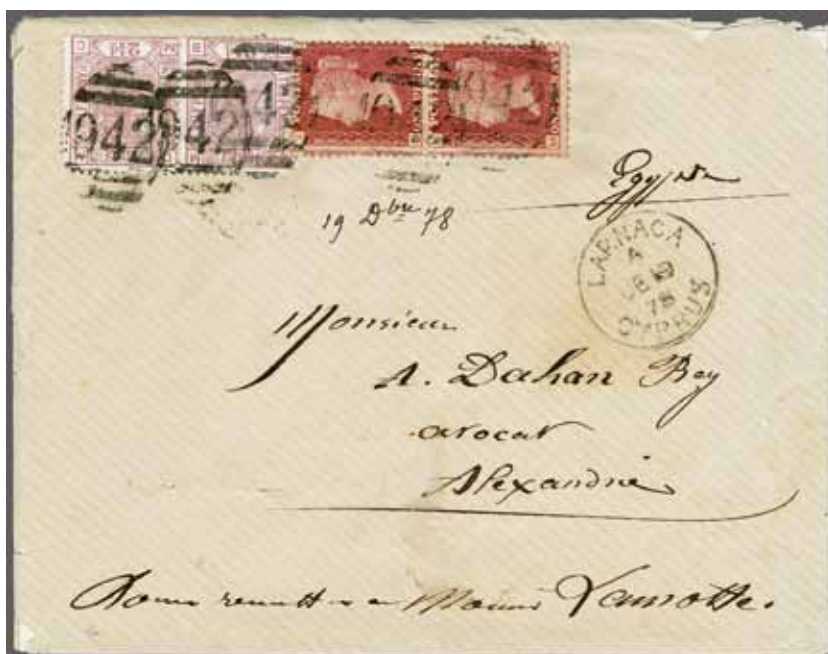 942 942 942 942
Egypte
19 Dbre 78
LARNACA
A
DE 19
78
CYPRUS
Monsieur
A. Dahan Bey
avocat
Alexandrie
Pour remettre a Lamotte.